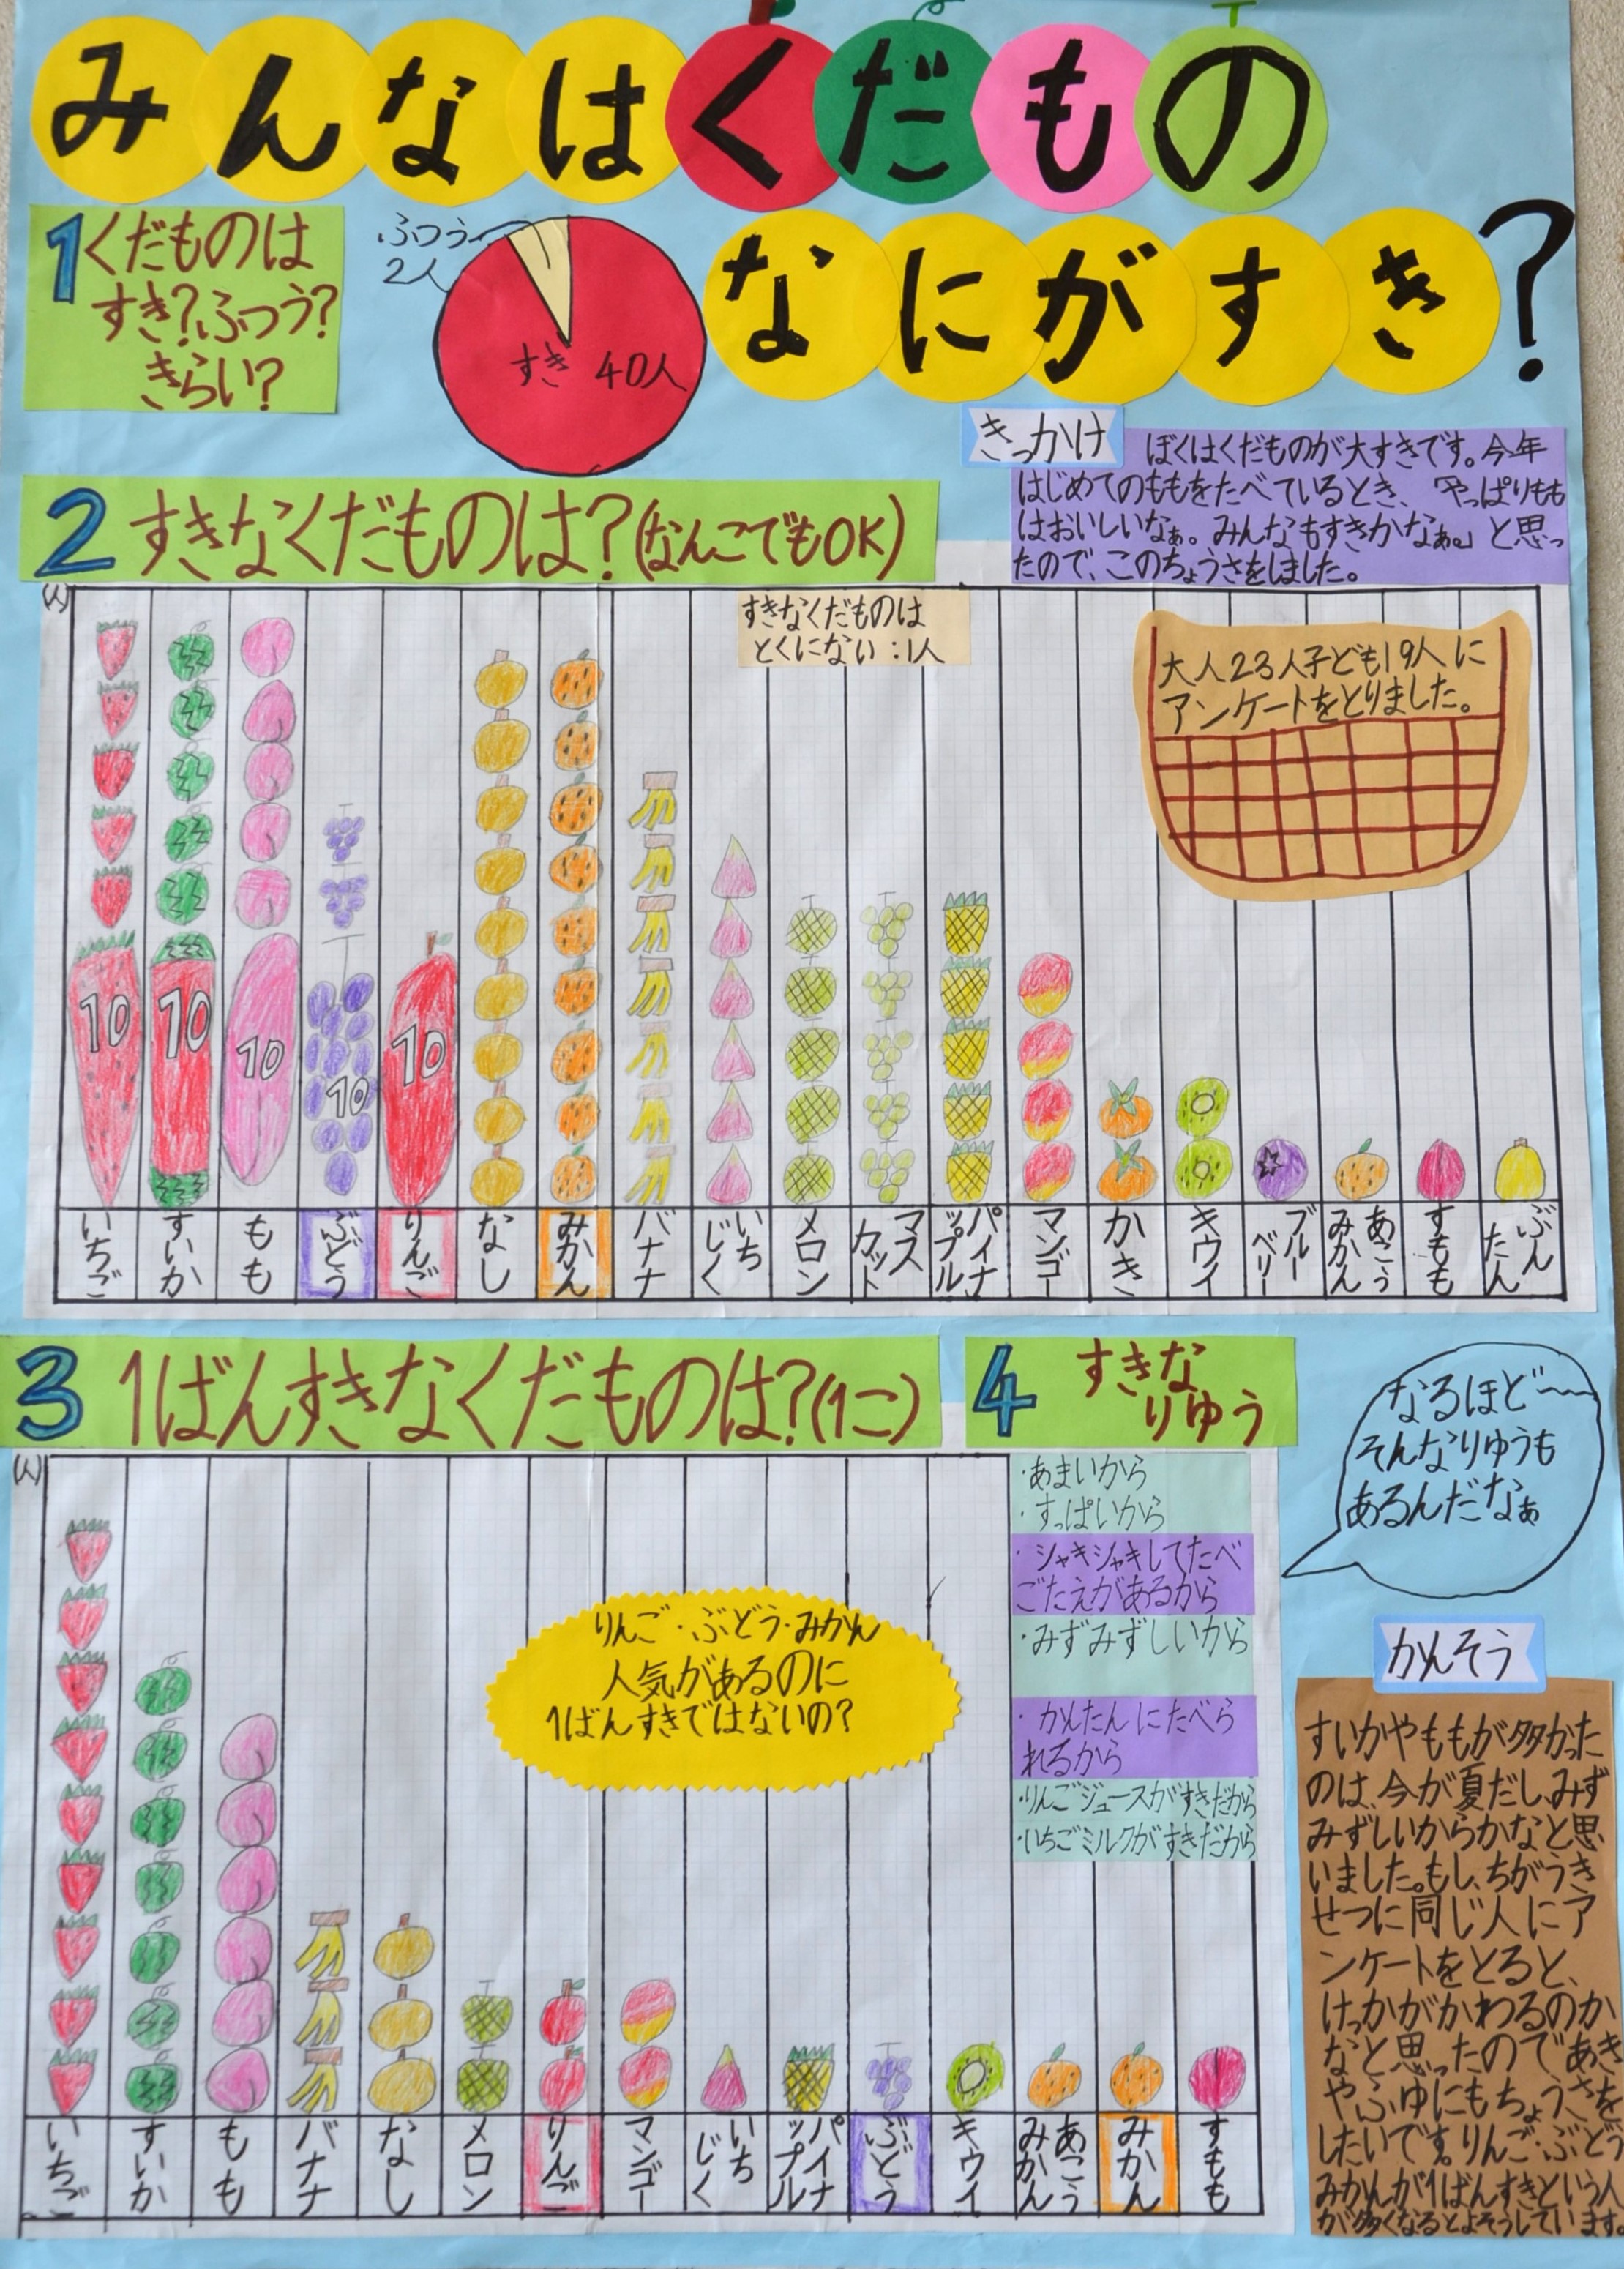 みんなはくだもの
なにがすき?
1 くだものは
すき?ふつう?
きらい?
ふつう
2人
すき 40人
きっかけ
ぼくはくだものが大すきです。今年
はじめてのももをたべているとき、「やっぱりもも
はおいしいなぁ。みんなもすきかなぁ。」と思っ
たので、このちょうさをしました。
2 すきなくだものは?(なんこでもOK)
(人)
すきなくだものは
とくにない:1人
大人23人子ども19人に
アンケートをとりました。
10
10
10
10
10
いちご
すいか
もも
ぶどう
りんご
なし
みかん
バナナ
いち
じく
メロン
マス
カット
パイナ
ップル
マンゴー
かき
キウイ
ブルー
ベリー
あこう
みかん
すもも
ぶん
たん
3 1ばんすきなくだものは?(1こ)
(人)
りんご・ぶどう・みかん
人気があるのに
1ばんすきではないの?
いちご
すいか
もも
バナナ
なし
メロン
りんご
マンゴー
いち
じく
パイナ
ップル
ぶどう
キウイ
あこう
みかん
みかん
すもも
4 すきな
りゆう
・あまいから
・すっぱいから
・シャキシャキしてたべ
ごたえがあるから
・みずみずしいから
・かんたんにたべら
れるから
・りんごジュースがすきだから
・いちごミルクがすきだから
なるほど〜
そんなりゆうも
あるんだなぁ
かんそう
すいかやももが多かった
のは、今が夏だし、みず
みずしいからかなと思
いました。もし、ちがうき
せつに同じ人にア
ンケートをとると、
けっかがかわるのか
なと思ったのであき
やふゆにもちょうさを
したいです。りんご・ぶどう
みかんが1ばんすきという人
が多くなるとよそうしています。